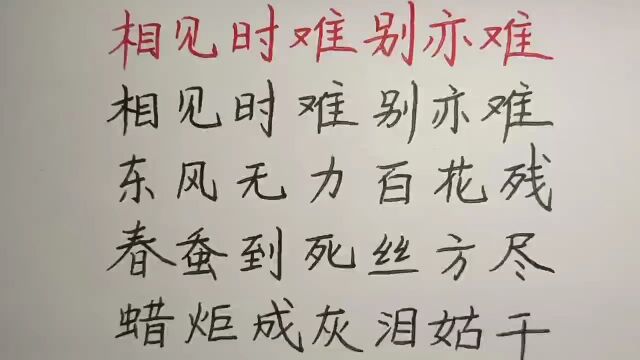 相见时难别亦难
相见时难别亦难
东风无力百花残
春蚕到死丝方尽
蜡炬成灰泪姑干